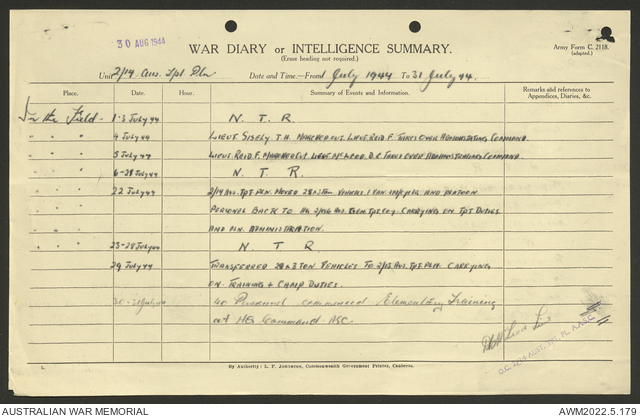 30 AUG 1944
WAR DIARY or INTELLIGENCE SUMMARY.
(Erase heading not required.)
Army Form C. 2118.
(adapted.)
Unit 2/14 Aus. Tpt Pln Date and Time—From 1 July 1944 To 31 July 44.
Place. Date. Hour. Summary of Events and Information. Remarks and references to Appendices, Diaries, &c.
In the Field - 1-3 July 44 N. T. R
" " " 4 July 44 Lieut Sisely T.H. Marched out. Lieut. Reid F. Takes over Administrating Command.
" " " 5 July 44 Lieut. Reid F. Marched out Lieut McLeod D.C. Takes over Administrating Command.
" " " 6-21 July 44 N. T. R.
" " " 22 July 44 2/14 Aus. Tpt. Pln. Moved 28 x 3 Ton Vehicles 1 Van and Platoon
Personnel back to Hq Aus. Gen. Tpt Coy Carrying on Tpt Duties
and Pln. Administration.
" " " 23-28 July 44 N. T. R
" " " 29 July 44 Transferred 28 x 3 Ton Vehicles to 2/13 Aus. Tpt. Pln. Carrying
on Training & Camp Duties.
30-31 July 44 40 Personnel commenced Elementary Training
at HQ Command ASC.
O.C. 2/14 AUST. TPT. PL. A.A.S.C.
L.
By Authority: L. F. Johnston, Commonwealth Government Printer, Canberra.
AUSTRALIAN WAR MEMORIAL
AWM2022.5.179